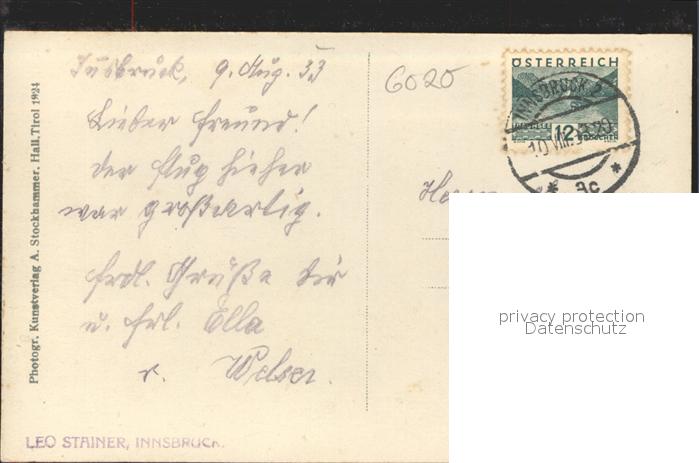 Insbruck, 9. Aug. 33
Lieber Freund!
der Flug hieher
war großartig.
frdl. Grüße dir
u. frl. Ella
v. Welser.
6020
ÖSTERREICH
INNSBRUCK 2
12
10 VIII 33 20
* 3c *
Herrn
privacy protection
Datenschutz
Photogr. Kunstverlag A. Stockhammer, Hall, Tirol 1924
LEO STAINER, INNSBRUCK.